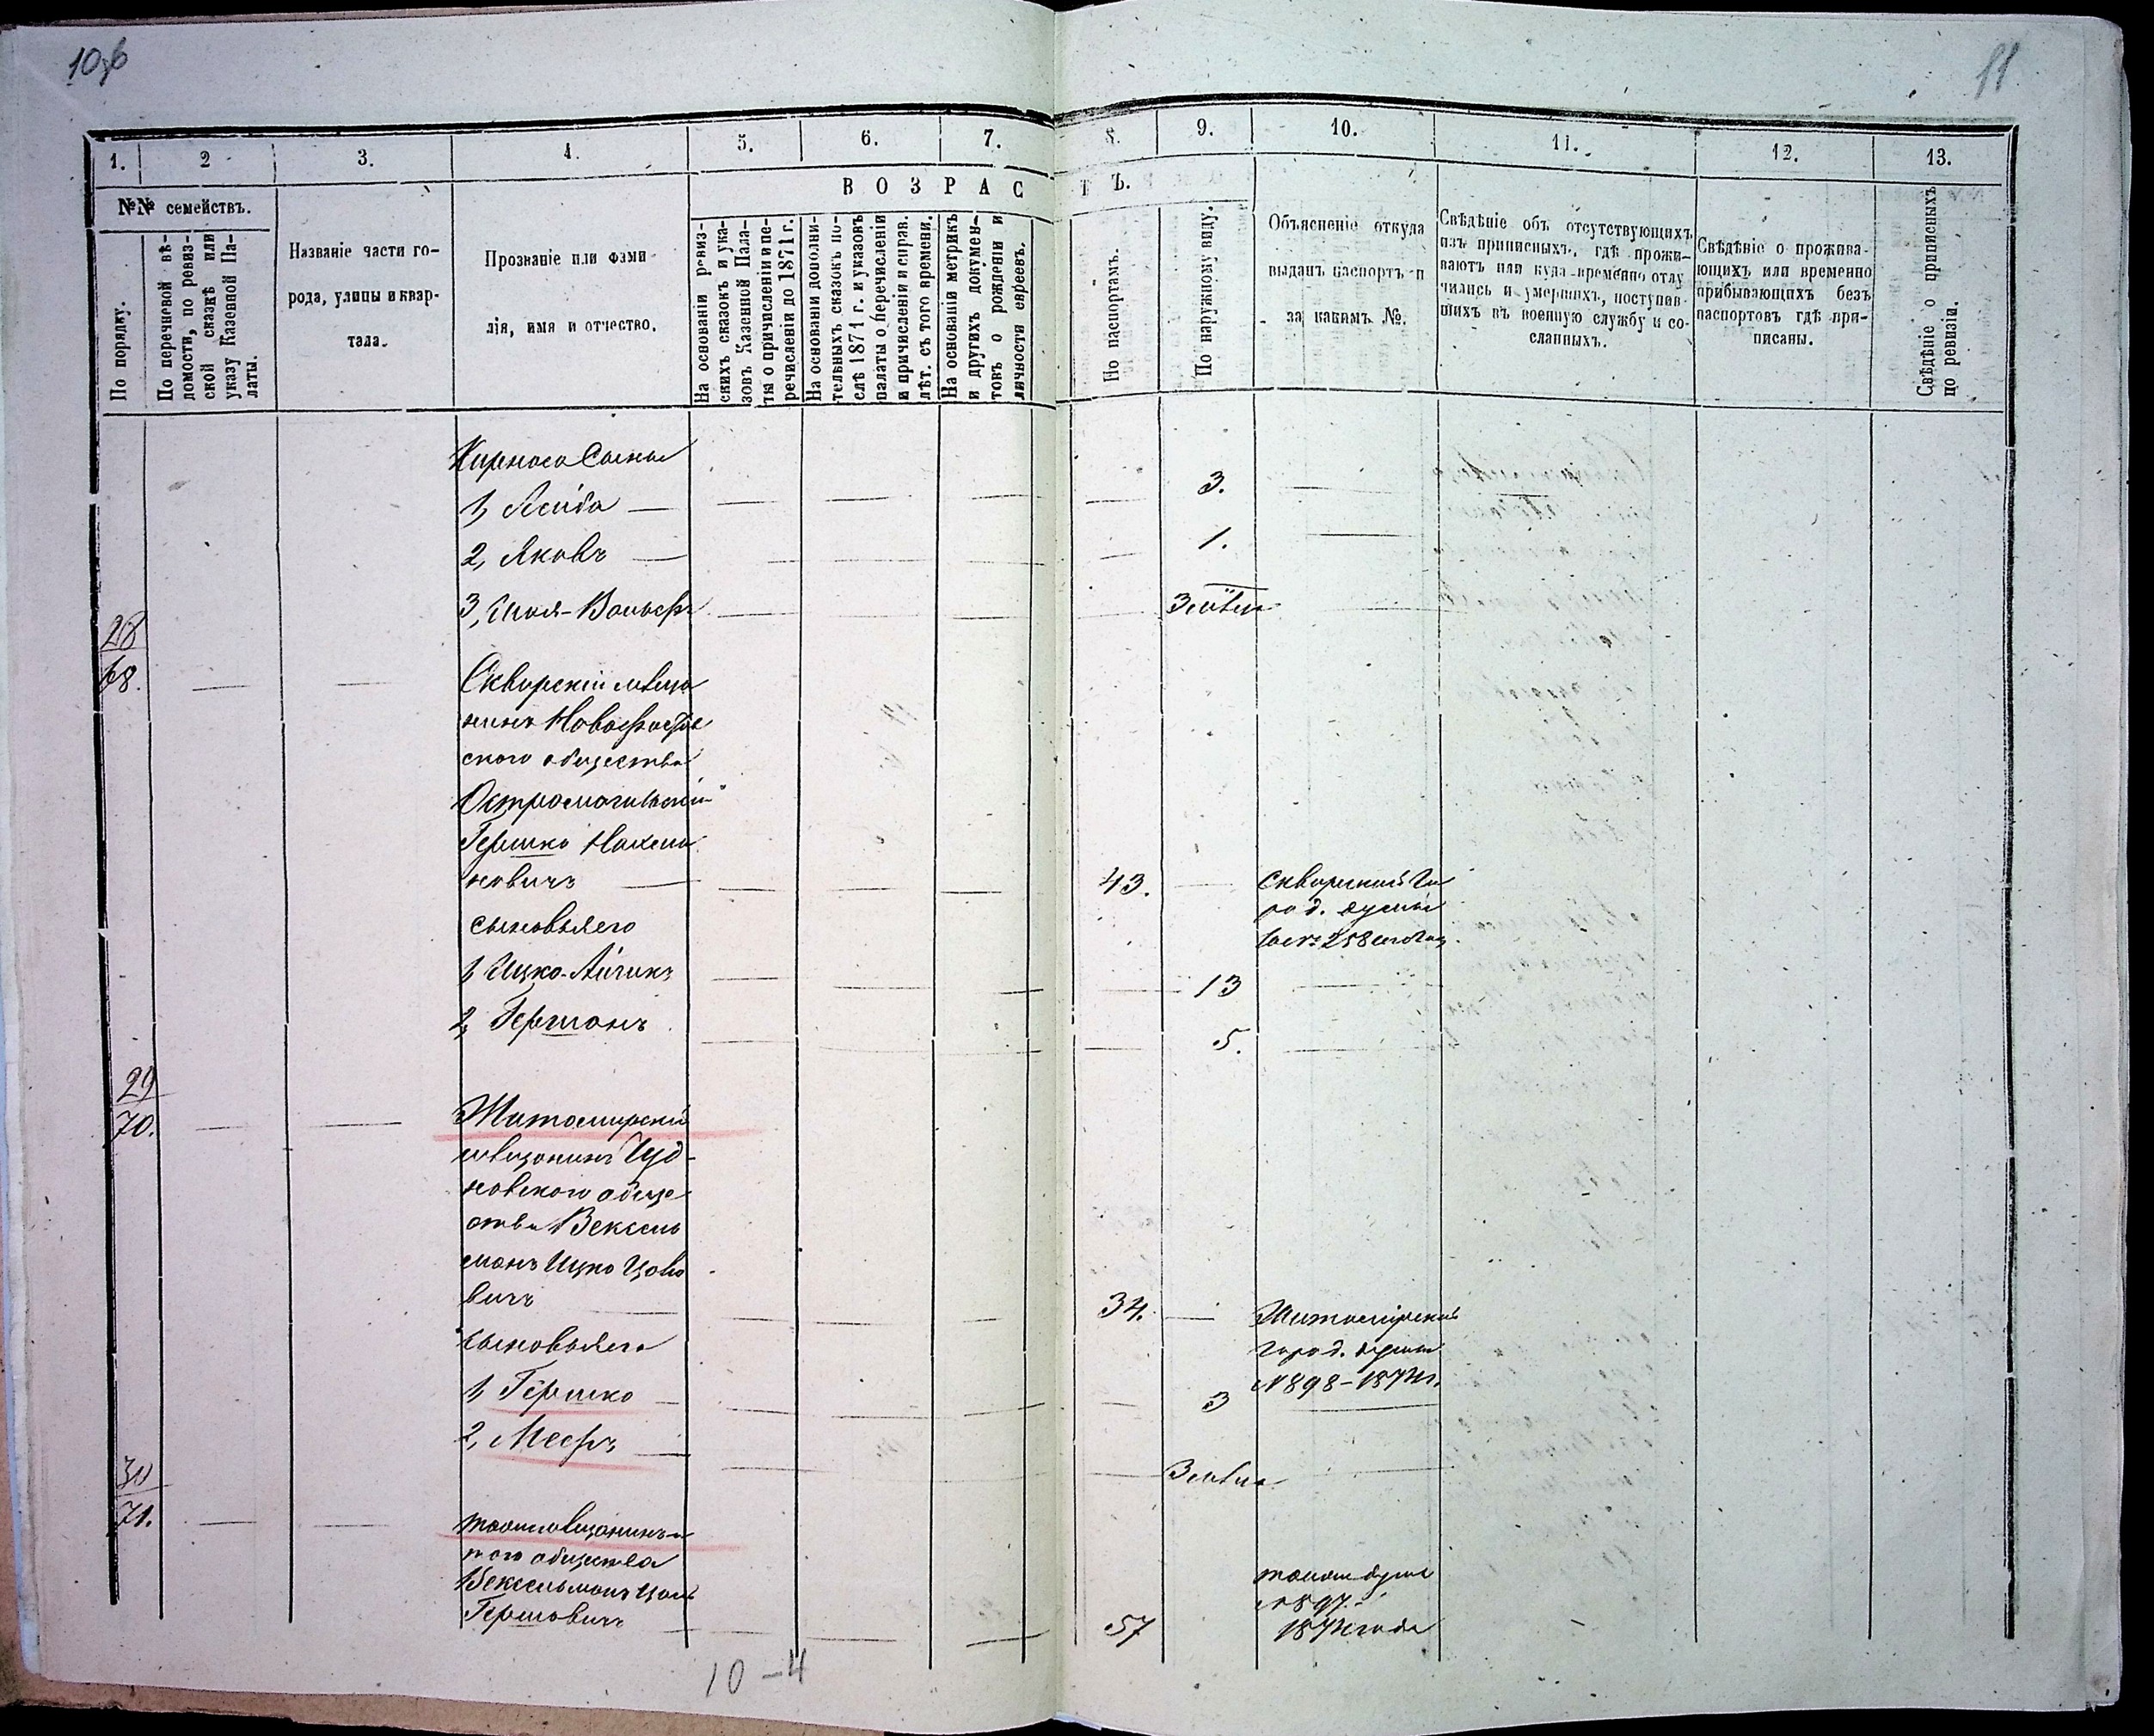 10об
11
1.
2
3.
4.
5.
6.
7.
8.
9.
10.
11.
12.
13.
№№ семействъ.
По порядку.
По перечневой вѣ-
домости, по ревиз-
ской сказкѣ или
указу Казенной Па-
латы.
Названіе части го-
рода, улицы и квар-
тала.
Прозваніе или фами
лія, имя и отчество.
ВОЗРАС
ТЪ.
На основаніи ревиз-
скихъ сказокъ и ука-
зовъ Казенной Пала-
ты о причисленіи и пе-
речисленіи до 1871 г.
На основаніи дополни-
тельныхъ сказокъ по-
слѣ 1871 г. и указовъ
палаты о перечисленіи
и причисленіи и справ.
лѣт. съ того времени.
На основаніи метрикъ
и другихъ докумен-
товъ о рожденіи и
личности евреевъ.
По паспортамъ.
По наружному виду.
Объясненіе откуда
выданъ паспортъ и
за какимъ №.
Свѣдѣніе объ отсутствующихъ
изъ приписныхъ, гдѣ прожи-
ваютъ или куда временно отлу
чились и умершихъ, поступив-
шихъ въ военную службу и со-
сланныхъ.
Свѣдѣніе о прожива-
ющихъ или временно
прибывающихъ безъ
паспортовъ гдѣ при-
писаны.
Свѣдѣніе о приписныхъ
по ревизіи.
Сыны
1, Лейба — 3.
2, Яковъ — 1.
3, Вольфъ 3 мѣся
28
68.
Сквирскій мѣща
нинъ
ского общества
Остромогильскій
Гершко Нахма
новичъ — 43.
Сквирской Го
род. думы
сыновья его
1, Ицко-Айзикъ 13
2, Гершонъ 5.
29
70.
Житомирскій
мѣщанинъ Чуд-
новского обще
ства Вексель
манъ Ицко
вичъ 34.
Житомірской
город. думы
№ 898 – 1874 г.
сыновья его
1, Гершко — 3
2, Меер — 3 мѣся
30
71.
тоть мѣщанинъ и
того общества
Вексельманъ
Гершовичъ 57
думы
№ 897.
1874 года
10 – 4